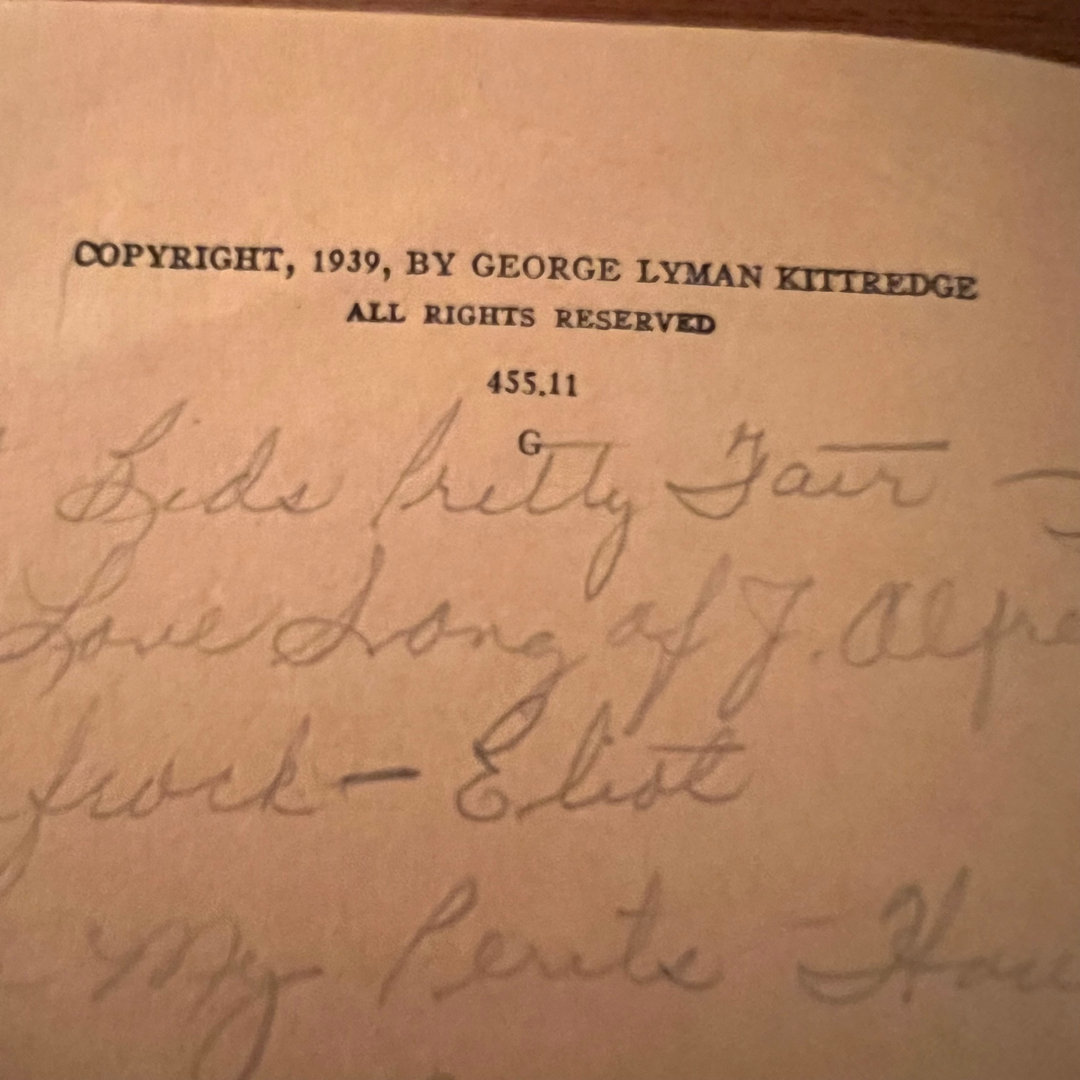 COPYRIGHT, 1939, BY GEORGE LYMAN KITTREDGE
ALL RIGHTS RESERVED
455.11
G
Bids Pretty Fair —
Love Song of J. Alfre
frock — Eliot
My Perits - Hou